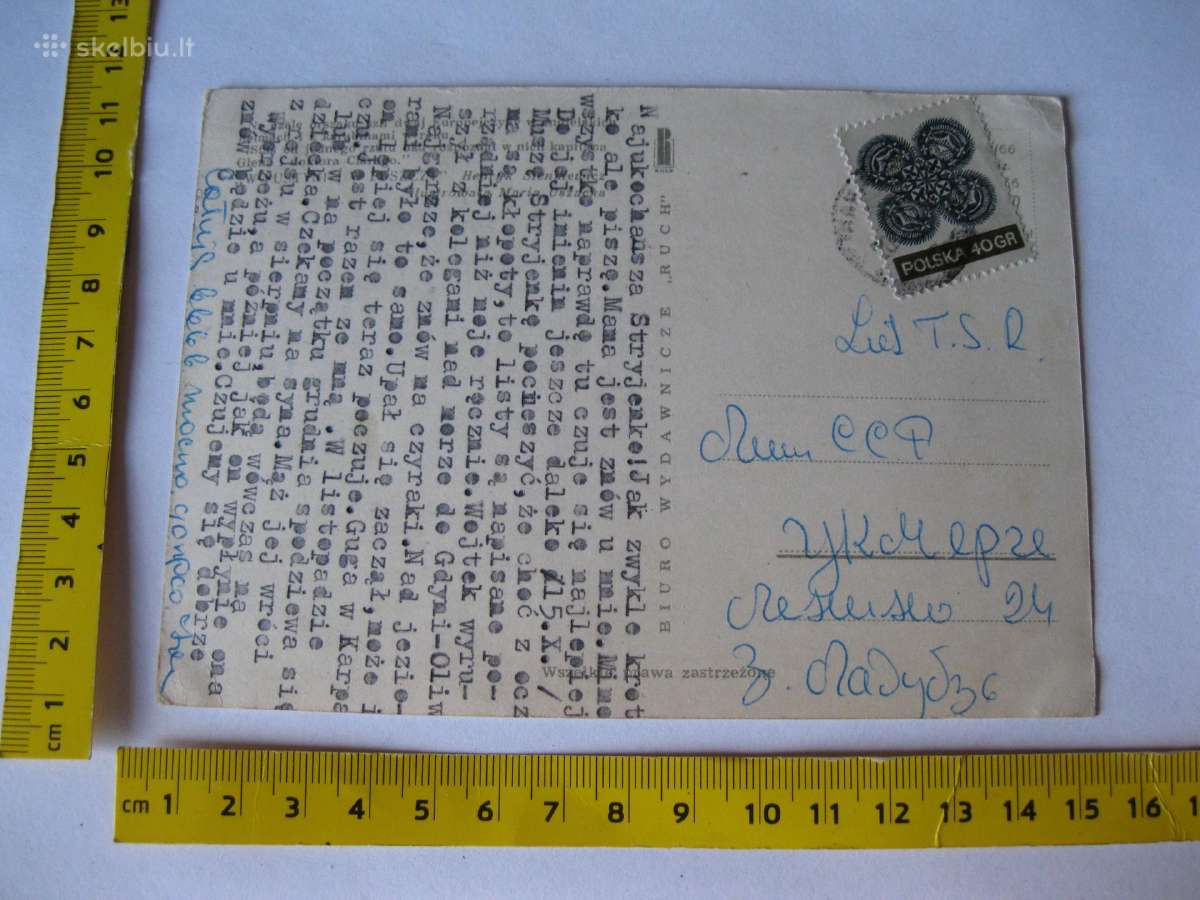 skelbiu.lt
Najukochańsza Stryjenko!Jak zwykle krót
ko ale piszę.Mama jest znów u mnie.Mimo
wszystko naprawdę tu czuje się najlepiej
Do jej imienin jeszcze daleko /15.X./
Muszę Stryjenkę pocieszyć,że choć z ocz
ma są kłopoty,to listy są napisane po-
rządniej niż moje ręcznie.Wojtek wyru-
szył z kolegami nad morze do Gdyni-Oliw
Najgorsze,że znów ma czyraki.Nad jezio-
rami było to samo.Upał się zaczął,może i
on lepiej się teraz poczuje.Guga w Karpa
czu.Jest razem ze mną .W listopadzie
lub w na początku grudnia spodziewa się
dziecka.Czekamy na syna.Mąż jej wróci
z rejsu w sierpniu,będą wówczas na
wybrzeżu,a później jak on wypłynie ona
znów będzie u mnie.Czujemy się dobrze
Całuję Was b. mocno
BIURO WYDAWNICZE „RUCH"
Wszelkie prawa zastrzeżone
POLSKA 40GR
Lit T.S.R.
Лит ССР
Укмерге
24
З.
cm 1 2 3 4 5 6 7 8 9 10 11 12 13
cm 1 2 3 4 5 6 7 8 9 10 11 12 13 14 15 16